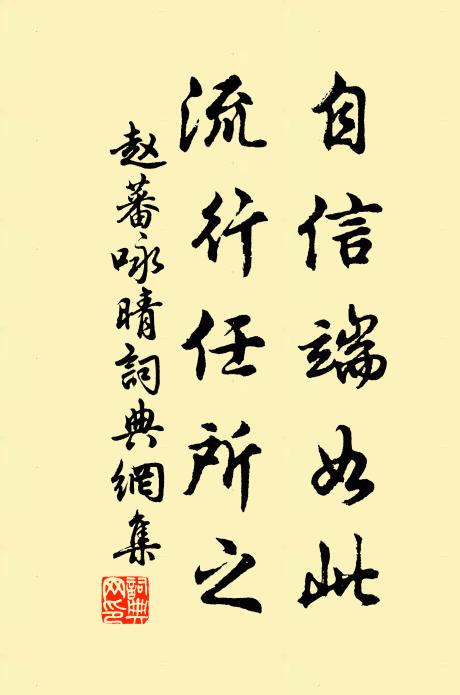 自信端如此
流行任所之
赵蕃咏晴詞典網集
詞典网印